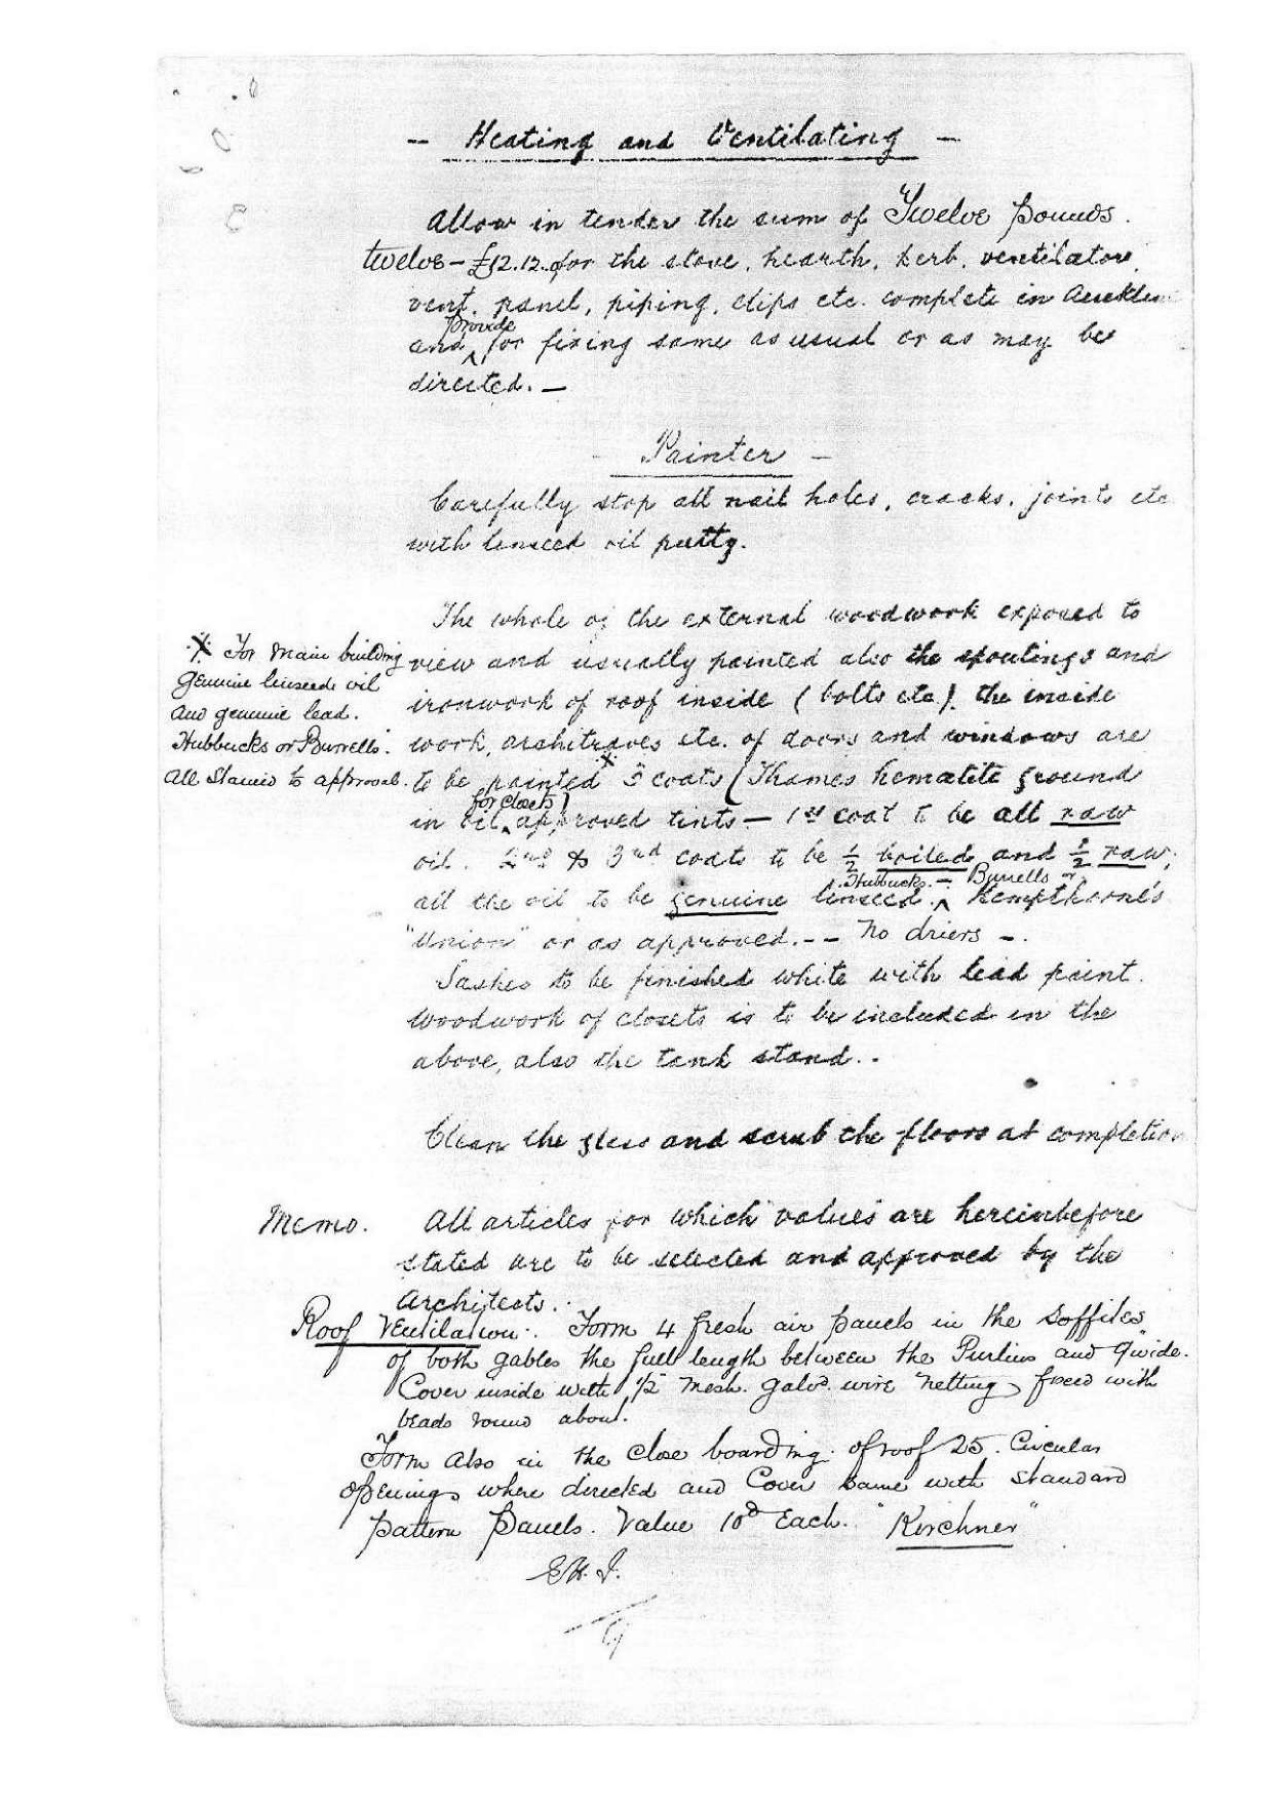 - Heating and Ventilating -
Allow in tender the sum of Twelve pounds.
twelve - £12.12.0 for the stove, hearth, kerb, ventilators,
vent. panel, piping, clips etc. complete in Auckland
provide
and for fixing same as usual or as may be
directed. -
- Painter -
Carefully stop all nail holes, cracks, joints etc
with linseed oil putty.
The whole of the external woodwork exposed to
view and usually painted also the spoutings and
ironwork of roof inside (bolts etc). the inside
work, architraves etc. of doors and windows are
to be painted x 3 coats (Thames hematite ground
for closets)
in oil approved tints - 1st coat to be all raw
oil. 2nd & 3rd coats to be ½ boiled and ½ raw;
Hubbucks - Burrells or
all the oil to be genuine linseed. Kempthorne's
"Union" or as approved. -- No driers -.
Sashes to be finished white with lead paint.
Woodwork of closets is to be included in the
above, also the tank stand. -
x For main building
genuine linseede oil
and genuine lead.
Hubbucks or Burrells.
All Stained to approval.
Clean the glass and scrub the floors at completion
Memo. All articles for which values are hereinbefore
stated are to be selected and approved by the
Architects.
Roof Ventilation: Form 4 fresh air panels in the Soffites
of both gables the full length between the Purlins and 9" wide.
Cover inside with ½ mesh. galvd. wire netting fixed with
beads round about.
Form also in the close boarding of roof 25. Circular
openings where directed and Cover same with standard
pattern Panels. Value 10d Each. "Kirchner"